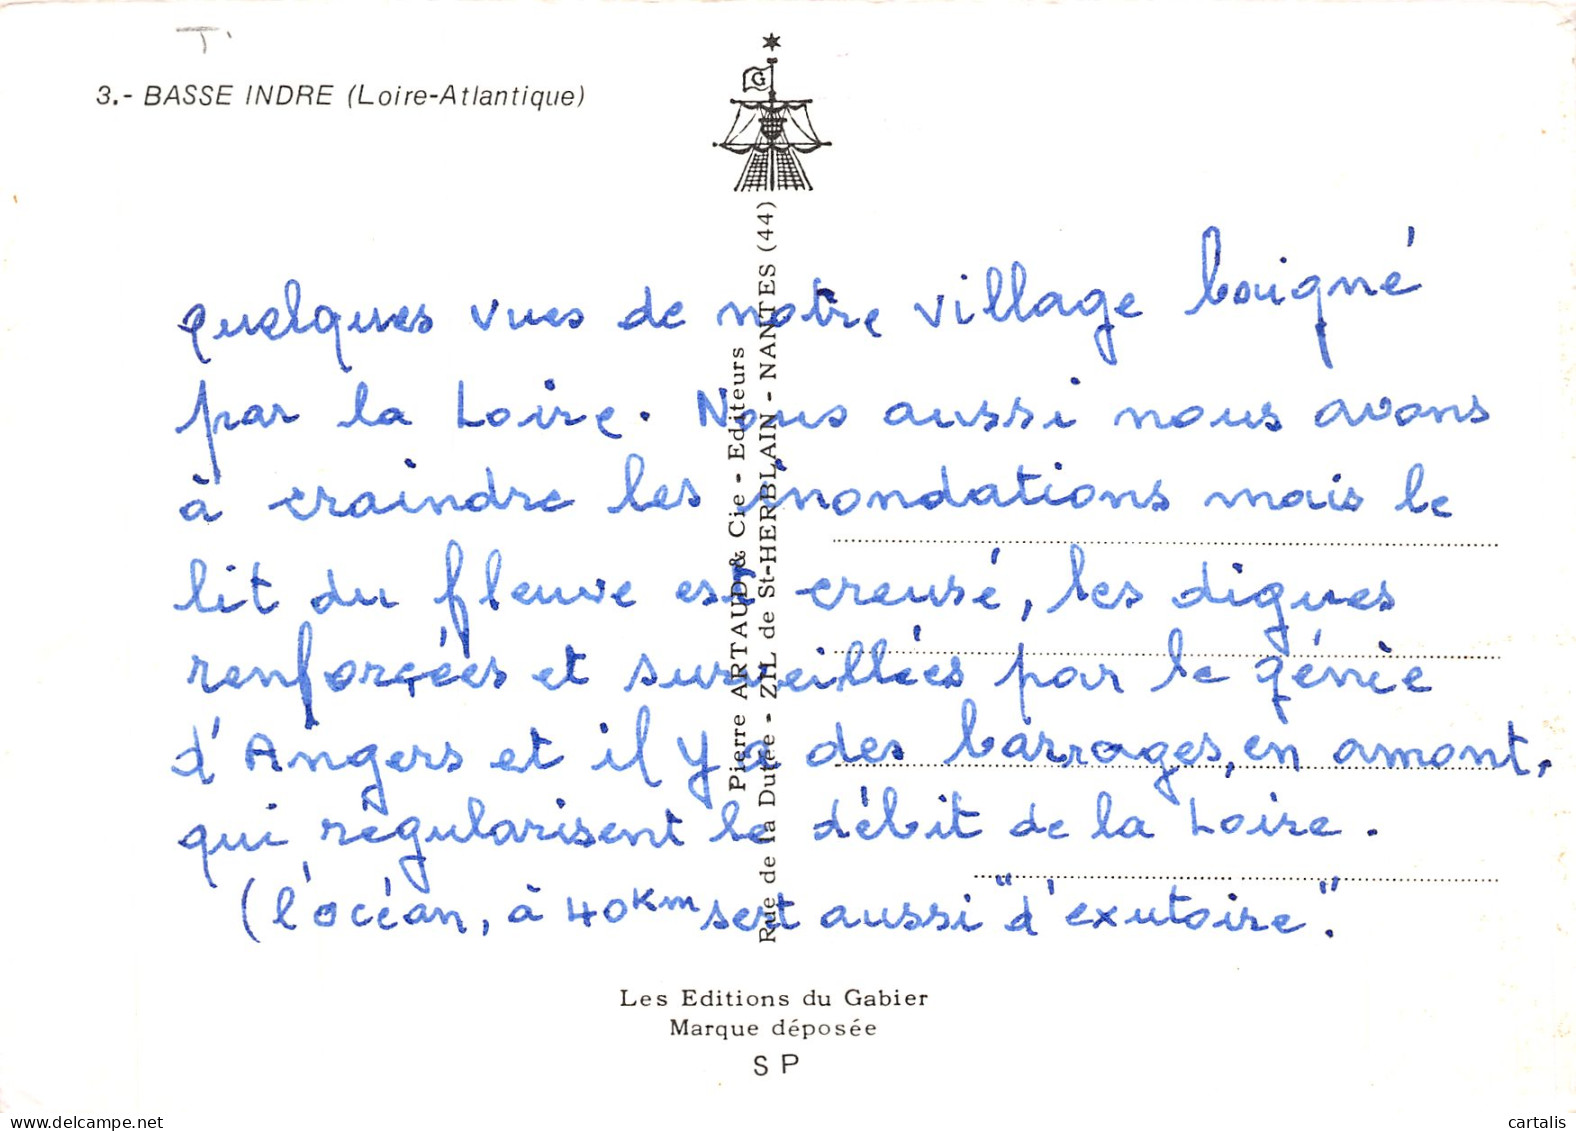 T.
3.- BASSE INDRE (Loire-Atlantique)
G
quelques vues de notre village baigné
par la Loire. Nous aussi nous avons
à craindre les inondations mais le
lit du fleuve est creusé, les digues
renforcées et surveillées par le génie
d'Angers et il y a des barrages, en amont,
qui régularisent le débit de la Loire.
(l'océan, à 40km sert aussi "d'exutoire".
Pierre ARTAUD & Cie - Editeurs
Rue de la Dutée - ZIL de St-HERBLAIN - NANTES (44)
Les Editions du Gabier
Marque déposée
SP
delcampe.net
cartalis